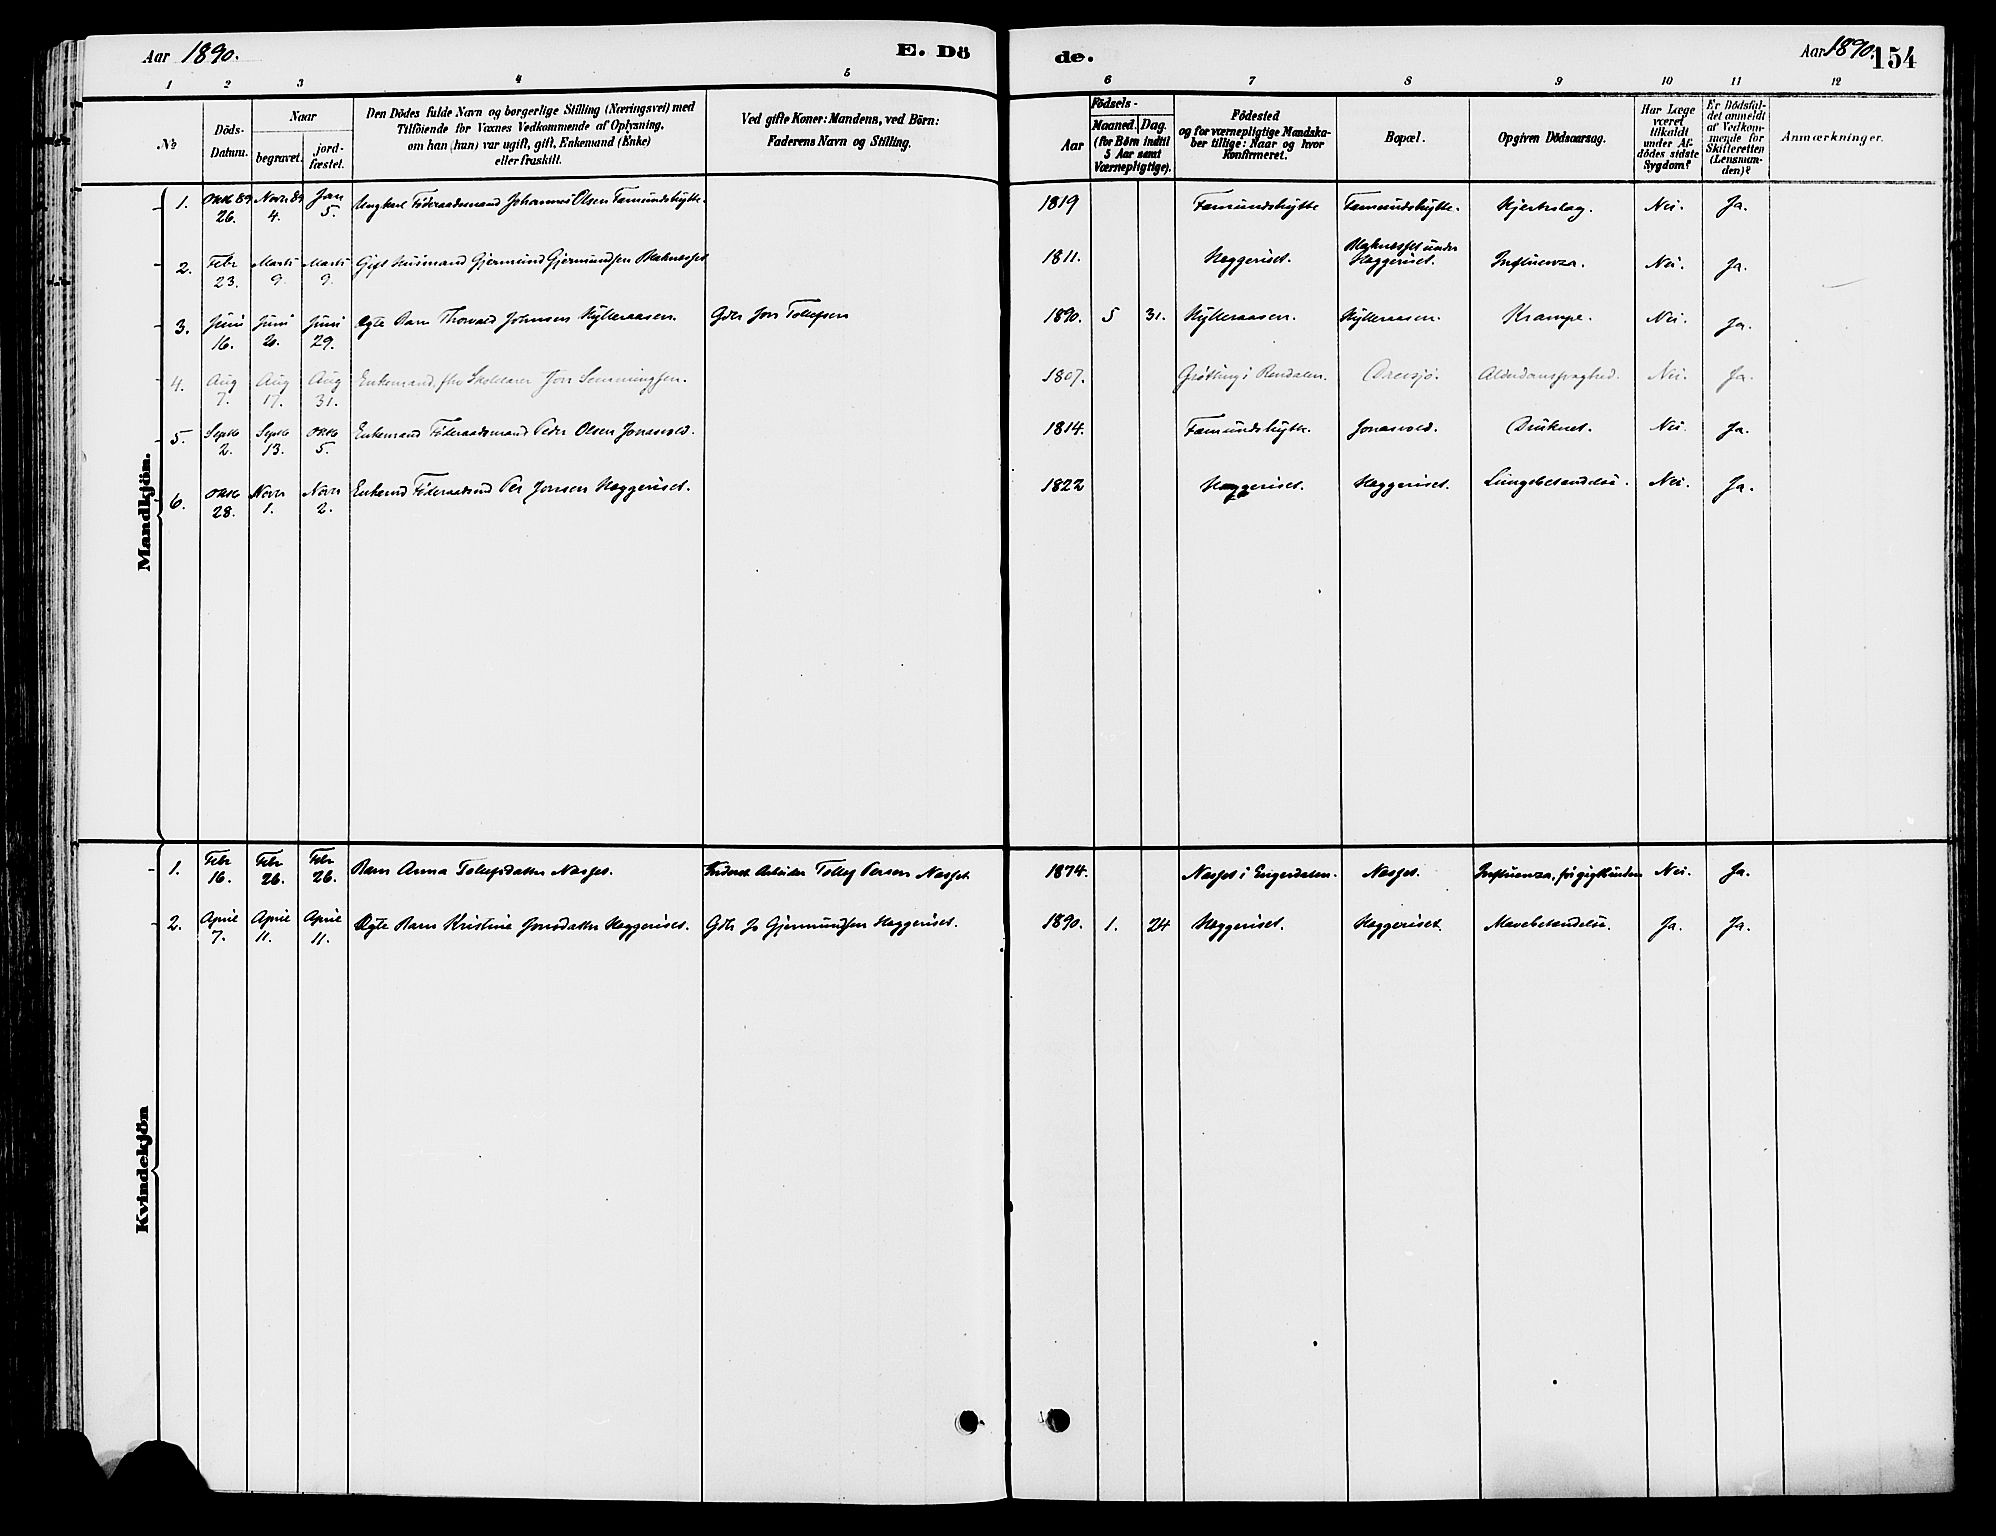 Aar 1890.
E. Dö
de.
Aar 1890.
154
1 2 3 4 5
6 7 8 9 10 11 12
No
Döds-
Datum.
Naar
begravet.
jord-
fæstet.
Den Dödes fulde Navn og borgerlige Stilling (Næringsvei) med
Tilföiende for Voxnes Vedkommende af Oplysning,
om han (hun) var ugift, gift, Enkemand (Enke)
eller fraskilt.
Ved gifte Koner: Mandens, ved Börn:
Faderens Navn og Stilling.
Födsels-
Aar
Maaned.
Dag.
(for Børn indtil
5 Aar samt
Værnepligtige).
Födested
og for værnepligtige Mandska-
ber tillige: Naar og hvor
Konfirmeret.
Bopæl.
Opgiven Dödsaarsag.
Har Læge
været
tilkaldt
under Af-
dödes sidste
Sygdom?
Er Dödsfal-
det anmeldt
af Vedkom-
mende for
Skifteretten
(Lensman-
den)?
Anmærkninger.
Mandkjön.
1. Oktb 89 26. Novr. 89 4. Jan 5. Ungkarl Föderaadsmand Johannes Olsen Fæmundshytte. 1819 Fæmundshytte Fæmundshytte. Hjerteslag. Nei. Ja.
2. Febr 23. Marts 9. Marts 9. Gift Husmand Gjermund Gjermundsen 1811. Heggeriset. under Heggeriset. Influenza. Nei. Ja.
3. Juni 16. Juni Juni 29. Ægte Barn Thorvald Johnsen Hylleraasen. Gdbr Jon Tollefsen 1890. 5 31. Hylleraasen. Hylleraasen. Krampe. Nei. Ja.
4. Aug 7. Aug 17. Aug 31. Enkemand, fhv Skolelærer Jon Semmingsen. 1807. Grötting i Rendalen. Drevsjö. Alderdomssvaghed. Nei. Ja.
5. Septb 2. Septb 13. Oktb 5. Enkemand Föderaadsmand Peder Olsen Jonasvold. 1814. Fæmundshytte. Jonasvold. Druknet. Nei. Ja.
6. Oktb 28. Novr 1. Novr 2. Enkemd Föderaadsmd Per Jonsen Heggeriset. 1822 Heggeriset. Heggeriset. Lungebetændelse. Nei. Ja.
Kvindekjön
1. Febr 16. Febr 26. Febr 26. Barn Anna Tollefsdatter Næsset. Arbeider Tollef Persen Næsset. 1874. Næsset i Engerdalen. Næsset. Influenza, Nei. Ja.
2. April 7. April 11. April 11. Ægte Barn Kristine Jonsdatter Heggeriset. Gdbr Jo Gjermundsen Heggeriset. 1890. 1. 24 Heggeriset. Heggeriset. Mavebetændelse. Ja. Ja.